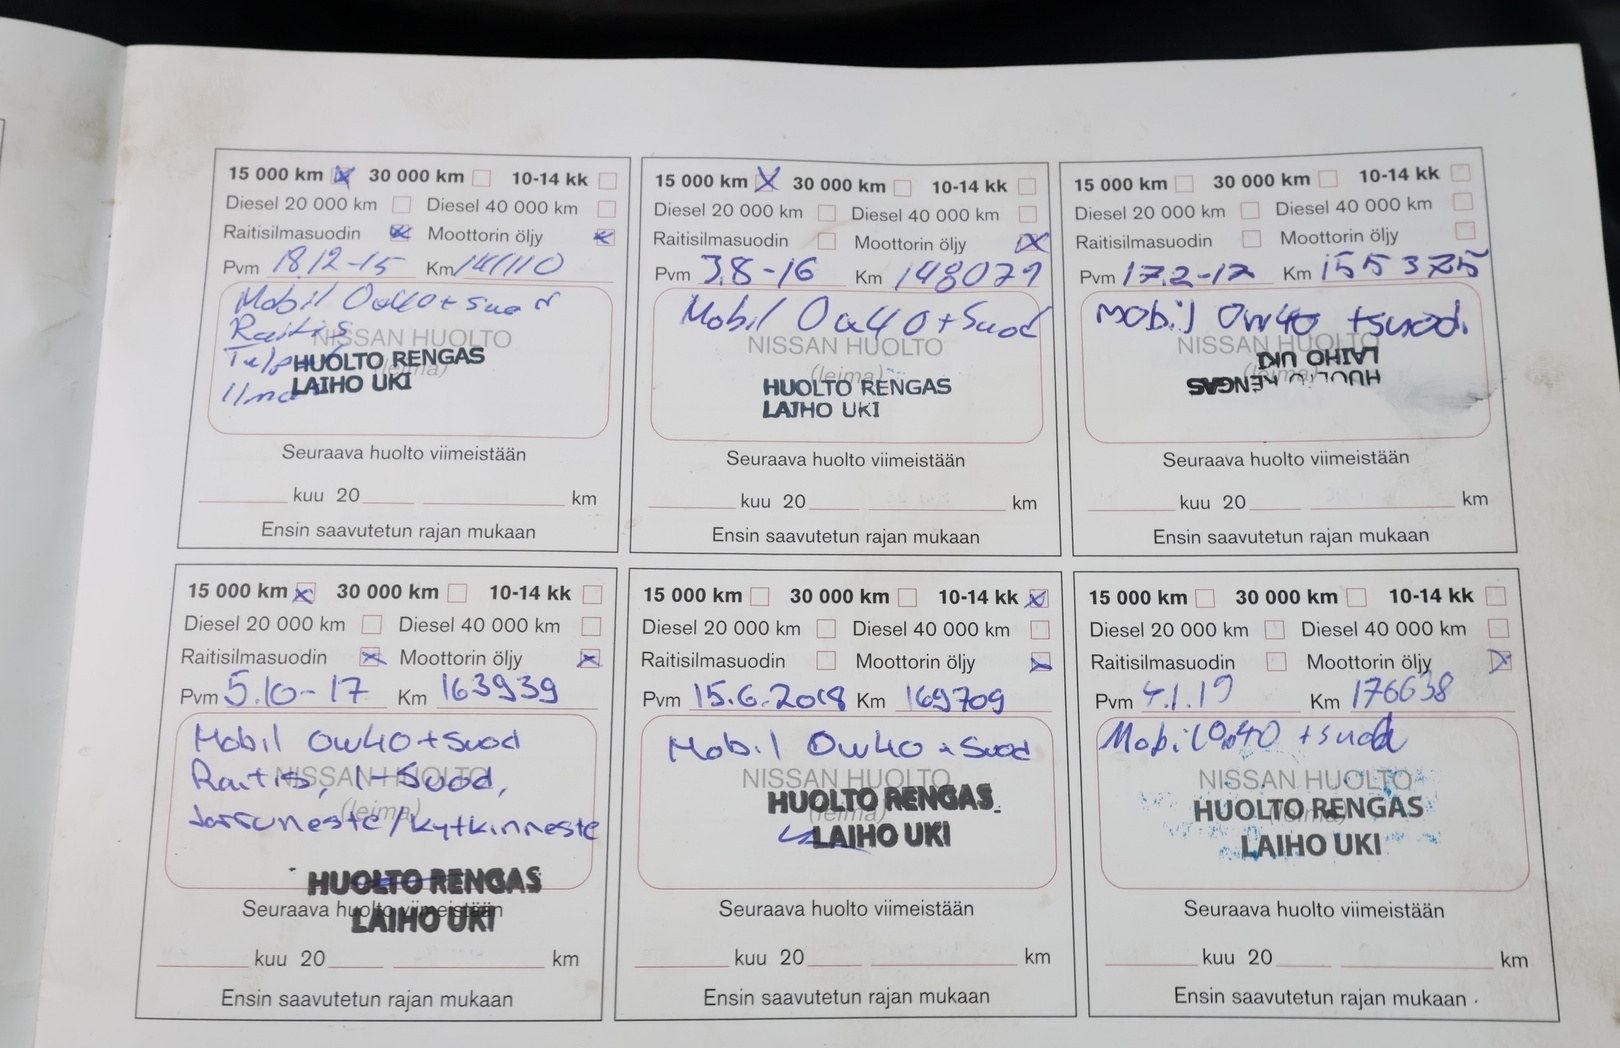 15 000 km 30 000 km 10-14 kk
Diesel 20 000 km Diesel 40 000 km
Raitisilmasuodin Moottorin öljy
Pvm 18.12-15 Km 141110
Mobil 0w40 + suod
Raitis
NISSAN HUOLTO
(leima)
HUOLTO RENGAS
LAIHO UKI
Seuraava huolto viimeistään
kuu 20 km
Ensin saavutetun rajan mukaan
15 000 km 30 000 km 10-14 kk
Diesel 20 000 km Diesel 40 000 km
Raitisilmasuodin Moottorin öljy
Pvm 3.8-16 Km 148079
Mobil 0w40 + Suod
NISSAN HUOLTO
(leima)
HUOLTO RENGAS
LAIHO UKI
Seuraava huolto viimeistään
kuu 20 km
Ensin saavutetun rajan mukaan
15 000 km 30 000 km 10-14 kk
Diesel 20 000 km Diesel 40 000 km
Raitisilmasuodin Moottorin öljy
Pvm 17.2-17 Km
Mobil 0w40 + suod.
NISSAN HUOLTO
(leima)
HUOLTO RENGAS
LAIHO UKI
Seuraava huolto viimeistään
kuu 20 km
Ensin saavutetun rajan mukaan
15 000 km 30 000 km 10-14 kk
Diesel 20 000 km Diesel 40 000 km
Raitisilmasuodin Moottorin öljy
Pvm 5.10-17 Km 163939
Mobil 0w40 + Suod
Raitis, I-Suod,
NISSAN HUOLTO
(leima)
Jarruneste/kytkinneste
HUOLTO RENGAS
LAIHO UKI
Seuraava huolto viimeistään
kuu 20 km
Ensin saavutetun rajan mukaan
15 000 km 30 000 km 10-14 kk
Diesel 20 000 km Diesel 40 000 km
Raitisilmasuodin Moottorin öljy
Pvm 15.6.2018 Km 169709
Mobil 0w40 + Suod
NISSAN HUOLTO
(leima)
HUOLTO RENGAS
LAIHO UKI
Seuraava huolto viimeistään
kuu 20 km
Ensin saavutetun rajan mukaan
15 000 km 30 000 km 10-14 kk
Diesel 20 000 km Diesel 40 000 km
Raitisilmasuodin Moottorin öljy
Pvm 4.1.19 Km 176638
Mobil 0w40 + suod
NISSAN HUOLTO
(leima)
HUOLTO RENGAS
LAIHO UKI
Seuraava huolto viimeistään
kuu 20 km
Ensin saavutetun rajan mukaan